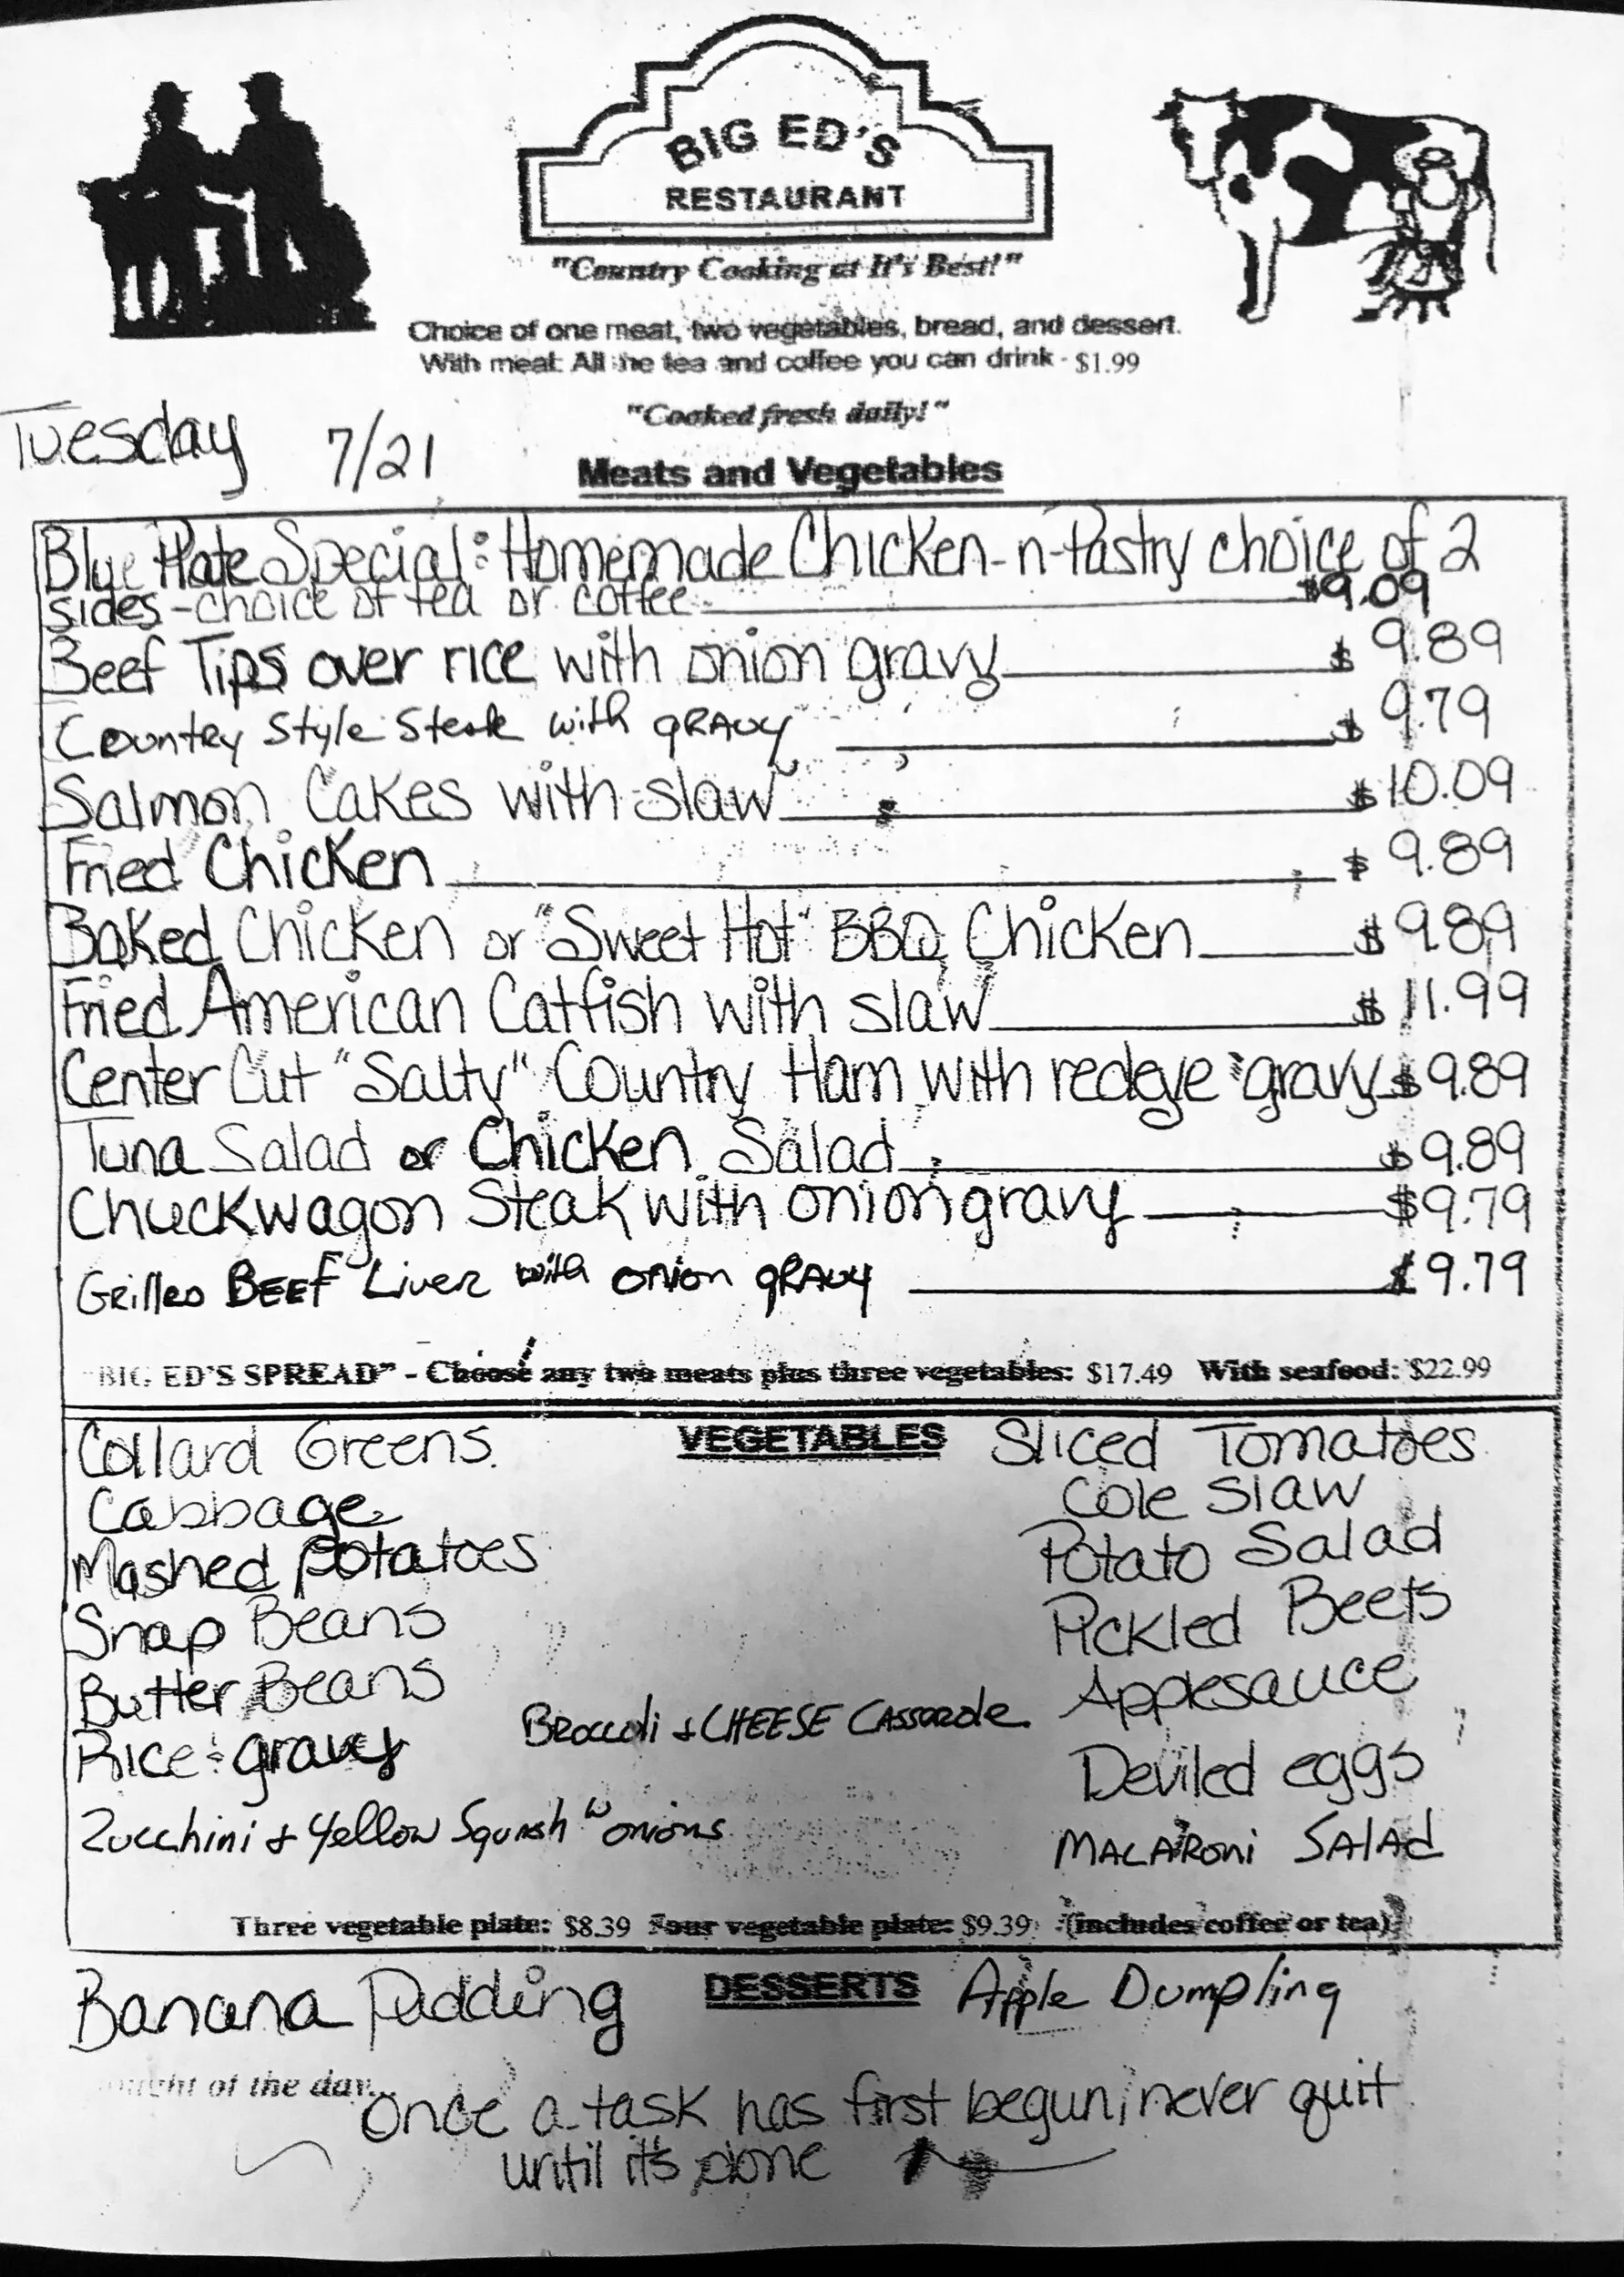 BIG ED'S
RESTAURANT
"Country Cooking at It's Best!"
Choice of one meat, two vegetables, bread, and dessert.
With meal: All the tea and coffee you can drink - $1.99
"Cooked fresh daily!"
Tuesday 7/21
Meats and Vegetables
Blue Plate Special: Homemade Chicken-n-Pastry choice of 2
sides - choice of tea or coffee $9.09
Beef Tips over rice with onion gravy $9.89
Country Style Steak with gravy $9.79
Salmon Cakes with slaw $10.09
Fried Chicken $9.89
Baked Chicken or "Sweet Hot" BBQ Chicken $9.89
Fried American Catfish with slaw $11.99
Center Cut "Salty" Country Ham with redeye gravy $9.89
Tuna Salad or Chicken Salad $9.89
Chuckwagon Steak with onion gravy $9.79
Grilled BEEF Liver with onion gravy $9.79
"BIG ED'S SPREAD" - Choose any two meats plus three vegetables: $17.49 With seafood: $22.99
VEGETABLES
Collard Greens
Cabbage
Mashed potatoes
Snap Beans
Butter Beans
Rice & gravy
Zucchini & Yellow Squash w onions
Broccoli & CHEESE Casserole
Sliced Tomatoes
Cole Slaw
Potato Salad
Pickled Beets
Applesauce
Deviled eggs
MACARONi SALAd
Three vegetable plate: $8.39 Four vegetable plate: $9.39 (includes coffee or tea)
DESSERTS
Banana Pudding
Apple Dumpling
of the day...
Once a task has first begun, never quit
until it's done